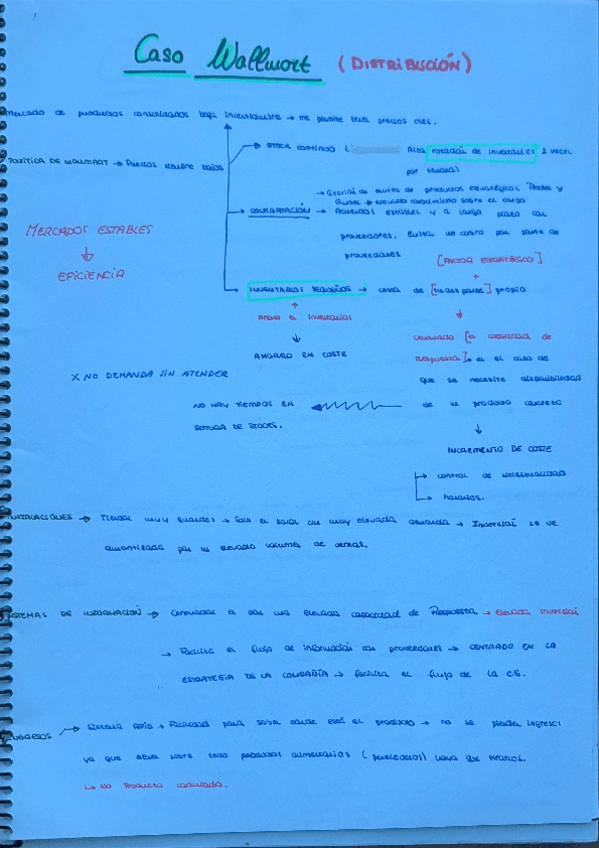 Caso Wallmart (DISTRIBUCIÓN)
Mercado de productos consolidados bajo → me permite tener precios
POLÍTICA DE WALMART → Precios siempre bajos
→ STOCK CONTINUO ( Alta rotación de inventarios 2 veces
por semana)
→ Gestión de envíos de productos estratégicos
→ elevado conocimiento sobre el
→ CONTRATACIÓN → Acuerdos estables y a largo plazo con
proveedores. Evita un costo por parte de
proveedores
MERCADOS ESTABLES
↓
EFICIENCIA
[FACTOR ESTRATÉGICO]
↑
→ INVENTARIOS PEQUEÑOS → cuenta de [transporte] propio
↑
Ahorro en Inventarios
↓
AHORRO EN COSTE
↓
Centrado [en capacidad de
Respuesta]. en el caso de
que se necesite disponibilidad
de un producto concreto
X NO DEMANDA SIN ATENDER
NO HAY TIEMPOS EN
ROTURA DE STOCKS.
↓
INCREMENTO DE COSTE
→ control de
→ horarios.
INSTALACIONES → Tiendas muy grandes → Solo en zonas con muy elevada demanda → Inversión se ve
amortizada por un elevado volumen de ventas.
SISTEMAS DE INFORMACIÓN → Centradas en dar una elevada capacidad de Respuesta → Elevada inversión
→ Facilita el flujo de información con proveedores → CENTRADO EN LA
ESTRATEGIA DE LA COMPAÑÍA → facilita el flujo de la C.S.
→ Sistema → Facilidad para saber donde está el producto → no se pierden ingresos
ya que sobre todo productos alimentarios (perecederos) haya que tirarlos.
↳ No Producto caducado.